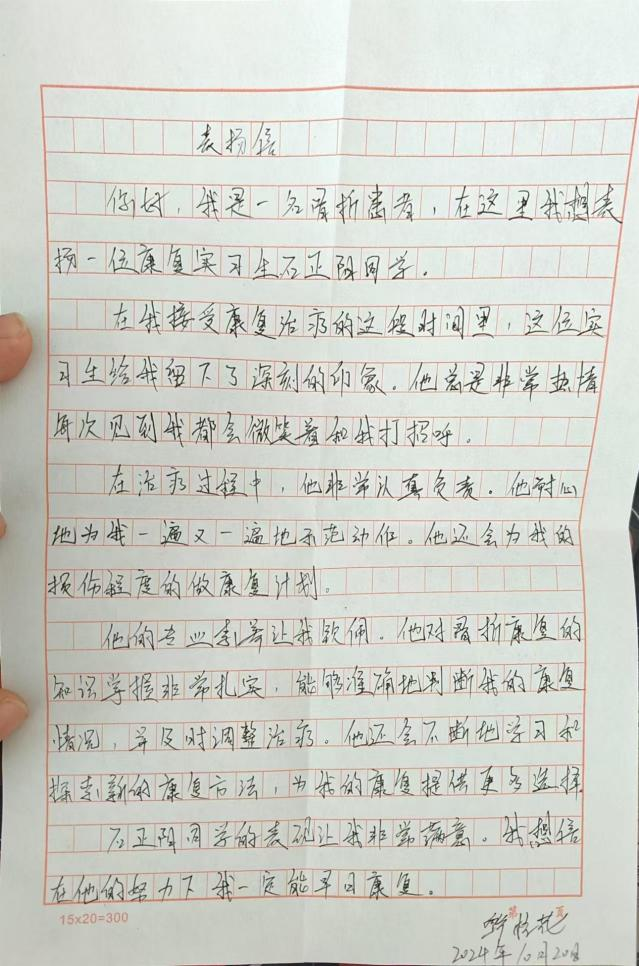 表扬信
你好，我是一名骨折患者，在这里我想表
扬一位康复实习生石正阳同学。
在我接受康复治疗的这段时间里，这位实
习生给我留下了深刻的印象。他总是非常热情
每次见到我都会微笑着和我打招呼。
在治疗过程中，他非常认真负责。他耐心
地为我一遍又一遍地示范动作。他还会为我的
损伤程度的做康复计划。
他的专业素养让我钦佩。他对骨折康复的
知识掌握非常扎实，能够准确地判断我的康复
情况，并及时调整治疗。他还会不断地学习和
探索新的康复方法，为我的康复提供更多选择
石正阳同学的表现让我非常满意。我想信
在他的努力下我一定能早日康复。
15×20=300
第 页
2024年10月20日